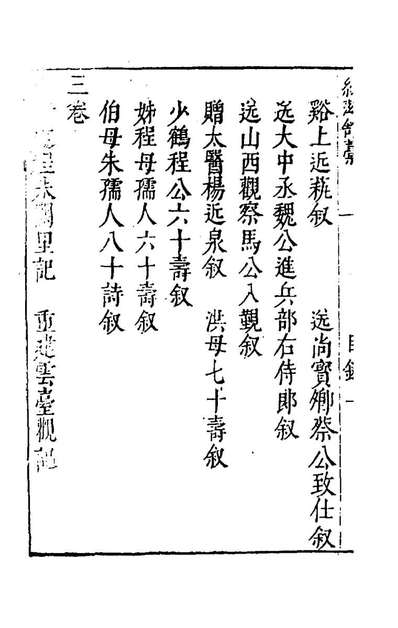 目錄 一
谿上近稅敘 送尚寶卿蔡公致仕敘
送大中丞魏公進兵部右侍郎敘
送山西觀察馬公入覲敘
贈太醫楊近泉敘 洪母七十壽敘
少鶴程公六十壽敘
姊程母孺人六十壽敘
伯母朱孺人八十詩敘
三卷
程朱闕里記 重建雲臺觀記